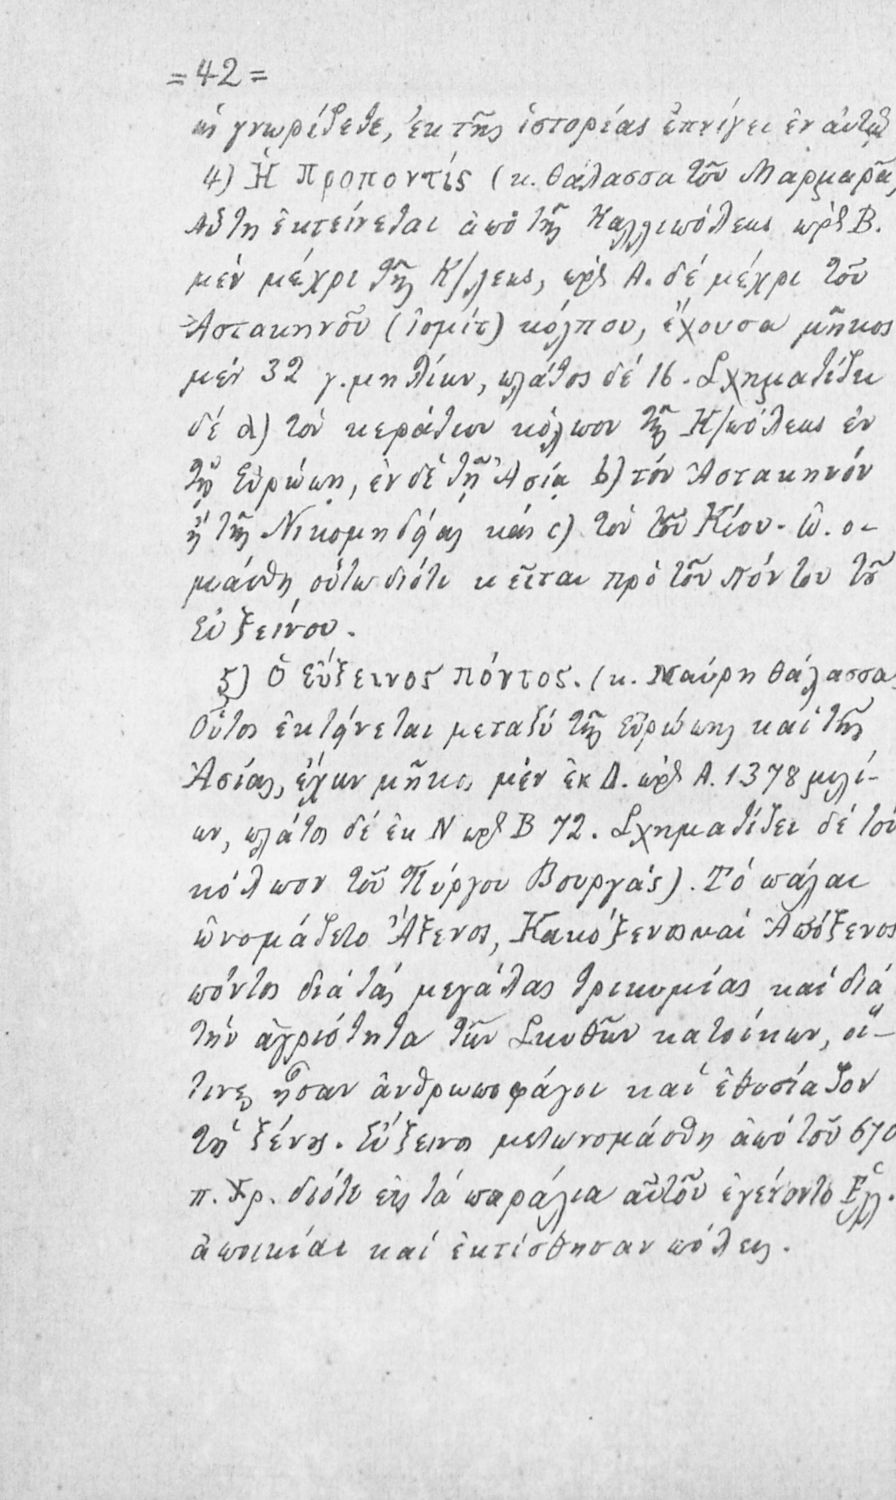 =42=
ὡς γνωρίζετε, ἐκ τῆς ἱστορίας ἐπνίγει ἐν αὐτῷ
4) Ἡ Προποντίς (κ. θάλασσα τοῦ Μαρμαρᾶ)
Αὕτη ἐκτείνεται ἀπὸ τῆς Καλλιπόλεως πρὸς Β.
μέν μέχρι τῆς Κ/λεως, πρὸς Α. δέ μέχρι τοῦ
Ἀστακηνοῦ (ἰσμίτ) κόλπου, ἔχουσα μῆκος
μέν 32 γ. μηλίων, πλάτος δέ 16. Σχηματίζει
δέ a) τόν κεράτιον κόλπον τῆς Κ/πόλεως ἐν
τῇ Εὐρώπῃ, ἐν δέ τῇ Ἀσίᾳ b) τόν Ἀστακηνόν
ἤ τῆς Νικομηδείας καί c) τόν τοῦ Κίου. Ὠ. ο-
μάσθη οὕτω διότι κεῖται πρὸ τοῦ Πόντου τοῦ
Εὐξείνου.
5) Ὁ Εὔξεινος πόντος. (κ. Μαύρη θάλασσα
Οὗτος ἐκτείνεται μεταξύ τῆς Εὐρώπης καί τῆς
Ἀσίας, ἔχων μῆκος μέν ἐκ Δ. πρὸς Α. 1378 μιλί-
ων, πλάτος δέ ἐκ Ν πρὸς Β 72. Σχηματίζει δέ τόν
κόλπον τοῦ Πύργου Βουργάς). Τό πάλαι
ὠνομάζετο Ἄξενος, Κακόξενος καί Ἀπόξενος
πόντος διά τάς μεγάλας τρικυμίας καί διά
τήν ἀγριότητα τῶν Σκυθῶν κατοίκων, οἵ-
τινες ἦσαν ἀνθρωποφάγοι καί ἐθυσίαζον
τούς ξένους. Εὔξεινος μετωνομάσθη ἀπό τοῦ 670
π. Χρ. διότι εἰς τά παράλια αὐτοῦ ἐγένοντο Ἑλλ.
ἀποικίαι καί ἐκτίσθησαν πόλεις.